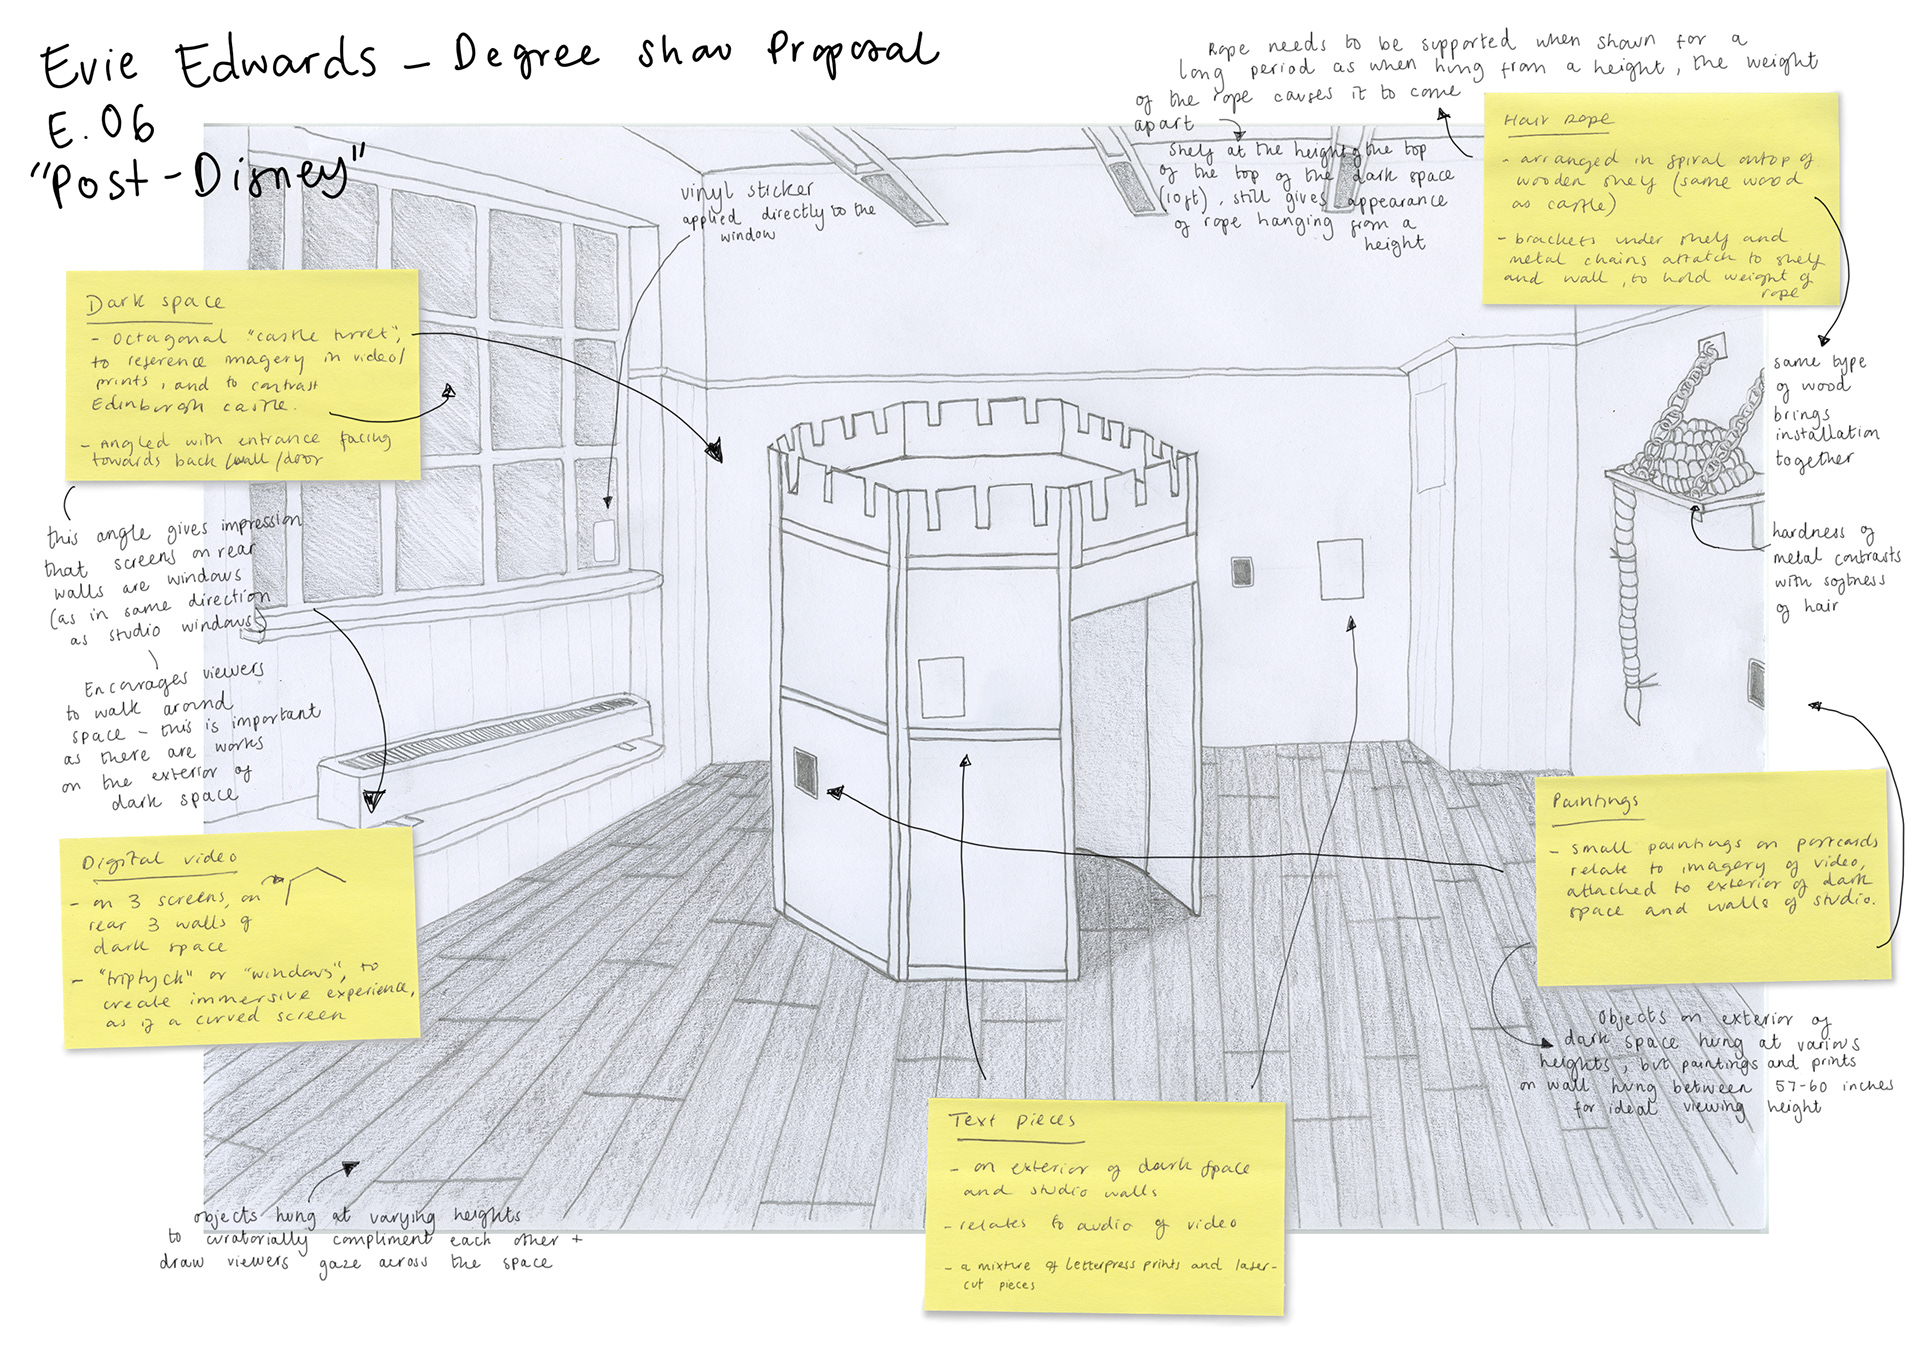 Evie Edwards - Degree Show Proposal
E.06
"Post-Disney"
Rope needs to be supported when shown for a
long period as when hung from a height, the weight
of the rope causes it to come
apart
shelf at the height of the top
of the top of the dark space
(10ft), still gives appearance
of rope hanging from a
height
Hair rope
- arranged in spiral ontop of
wooden shelf (same wood
as castle)
- brackets under shelf and
metal chains attatch to shelf
and wall, to hold weight of
rope
same type
of wood
brings
installation
together
hardness of
metal contrasts
with softness
of hair
vinyl sticker
applied directly to the
window
Dark space
- Octagonal "castle turret",
to reference imagery in video/
prints, and to contrast
Edinburgh castle.
- Angled with entrance facing
towards back wall/door
this angle gives impression
that screens on rear
walls are windows
(as in same direction
as studio windows)
Encourages viewers
to walk around
space - this is important
as there are works
on the exterior of
dark space
Digital video
- on 3 screens, on
rear 3 walls of
dark space
- "triptyck" or "windows", to
create immersive experience,
as if a curved screen
Paintings
- small paintings on postcards
relate to imagery of video,
attached to exterior of dark
space and walls of studio.
Objects on exterior of
dark space hung at various
heights, but paintings and prints
on wall hung between 57-60 inches
for ideal viewing height
Text pieces
- on exterior of dark space
and studio walls
- relates to audio of video
- a mixture of letterpress prints and laser-
cut pieces
objects hung at varying heights
to curatorially compliment each other +
draw viewers gaze across the space